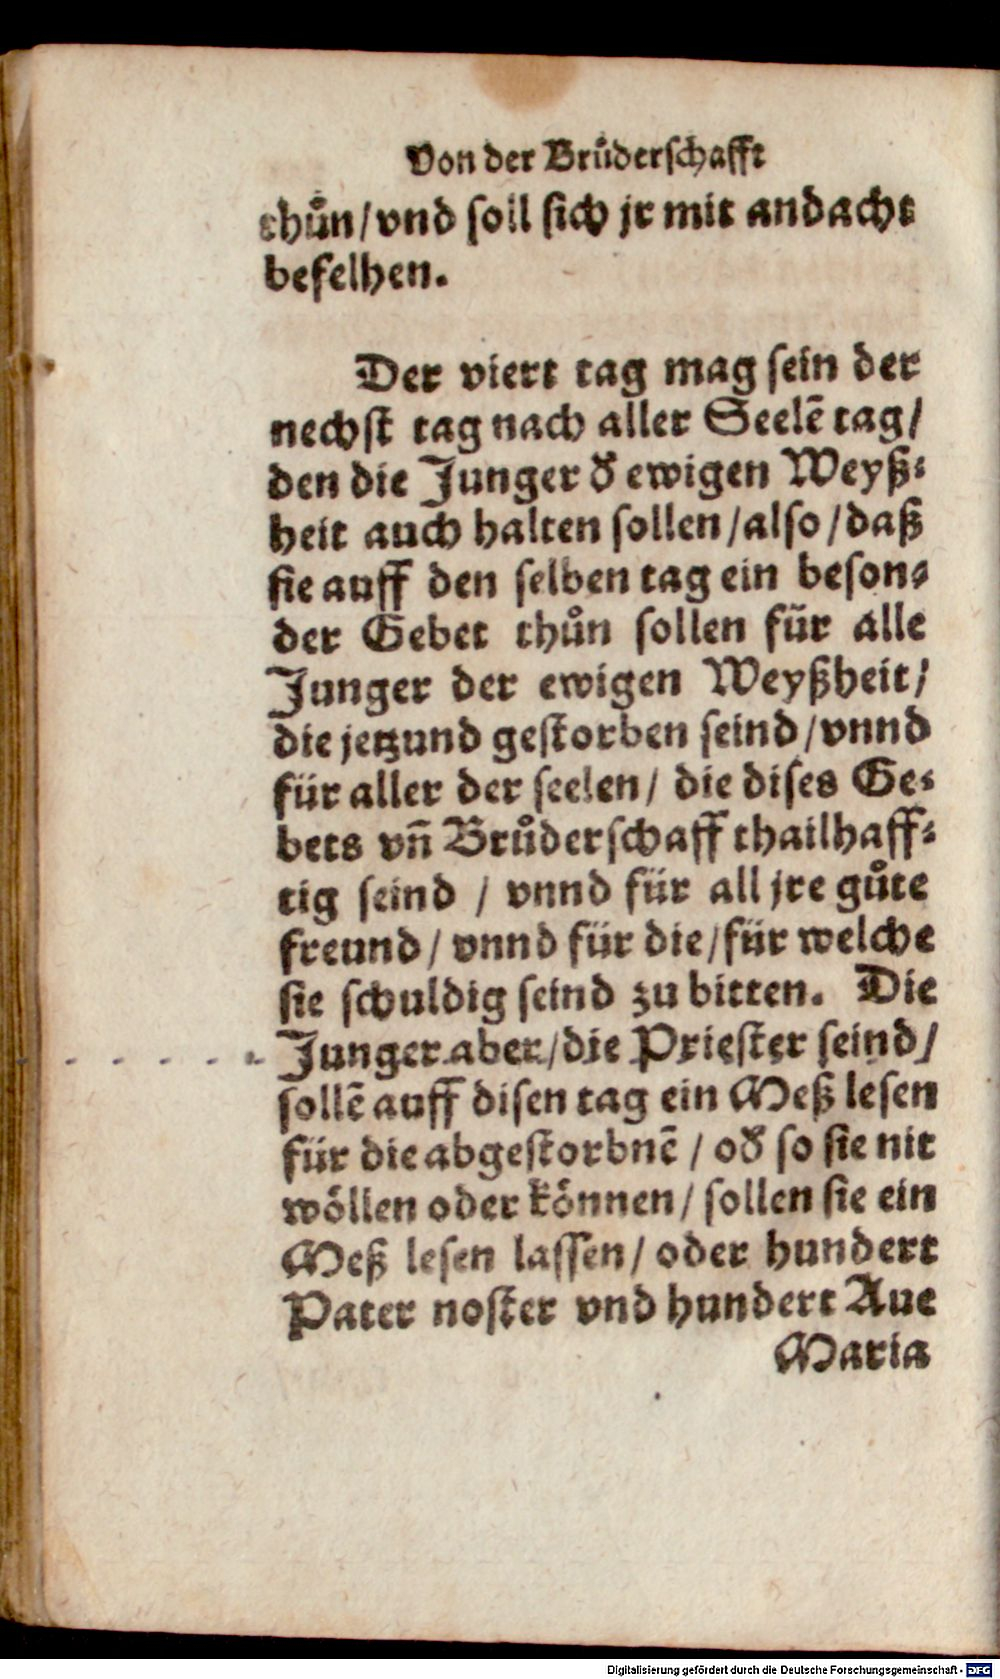 Von der Bruͤderschafft
thuͦn/vnd soll sich jr mit andacht
befelhen.
Der viert tag mag sein der
nechst tag nach aller Seelē tag/
den die Junger d̕ ewigen Weyß⸗
heit auch halten sollen/also/daß
sie auff den selben tag ein beson⸗
der Gebet thuͦn sollen für alle
Junger der ewigen Weyßheit/
die jetzund gestorben seind/vnnd
für aller der seelen/ die dises Ge⸗
bets vñ Bruͦderschaff thailhaff⸗
tig seind / vnnd für all jre guͦte
freund/ vnnd für die/für welche
sie schuldig seind zu bitten. Die
Junger aber/die Priester seind/
sollē auff disen tag ein Meß lesen
für die abgestorbnē / od̕ so sie nit
wöllen oder können/ sollen sie ein
Meß lesen lassen/ oder hundert
Pater noster vnd hundert Aue
Maria
Digitalisierung gefördert durch die Deutsche Forschungsgemeinschaft - DFG